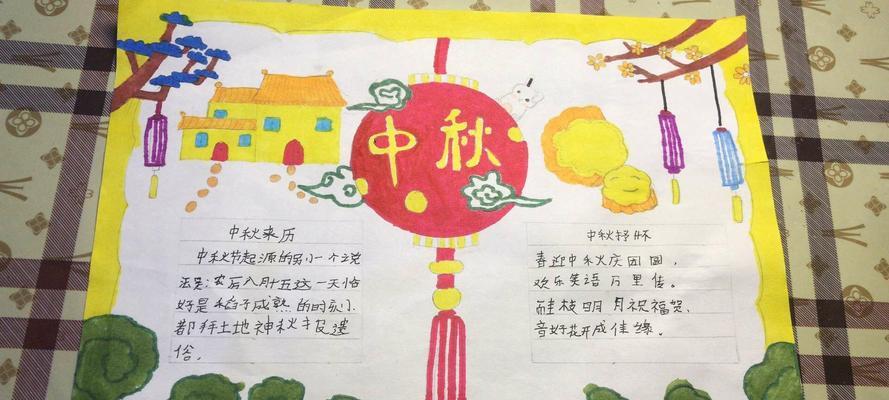 中秋
中秋来历
中秋节起源的另一个说
法是:农历八月十五这一天恰
好是稻子成熟的时刻,
都拜土地神秋报遗
俗。
中秋抒怀
喜迎中秋庆团圆,
欢乐笑语万里传。
桂枝明月祝福贺,
音好花开成佳缘。